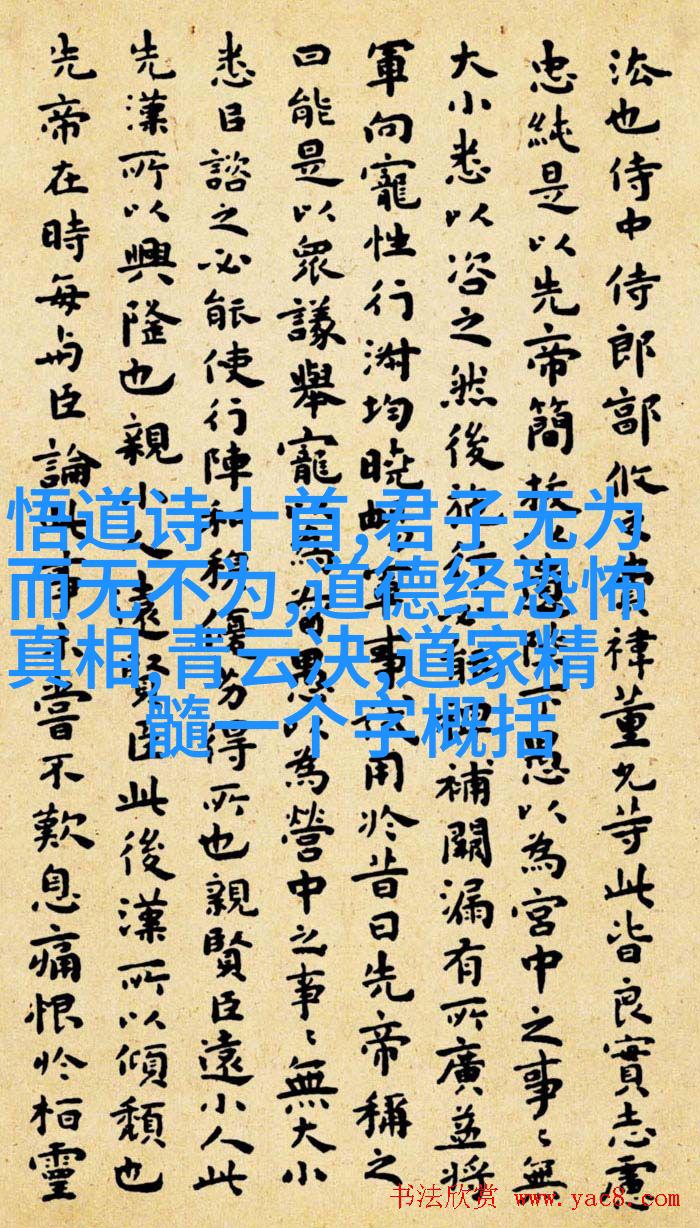 法也侍中侍郎郭攸之費禕董允等此皆良實志慮
忠純是以先帝簡拔以遺陛下愚以為宮中之事〻無
大小悉以咨之然後施行必能裨補闕漏有所廣益將
軍向寵性行淑均曉暢軍事試用於昔日先帝稱之
曰能是以眾議舉寵以為督愚以為營中之事〻無大小
悉以諮之必能使行陣和穆優劣得所也親賢臣遠小人此
先漢所以興隆也親小人遠賢臣此後漢所以傾頹也
先帝在時每與臣論此事未嘗不歎息痛恨於桓靈
悟道诗十首,君子无为
而无不为,道德经恐怖
真相,青云决,道家精
髓一个字概括
书法欣赏 www.yac8.com